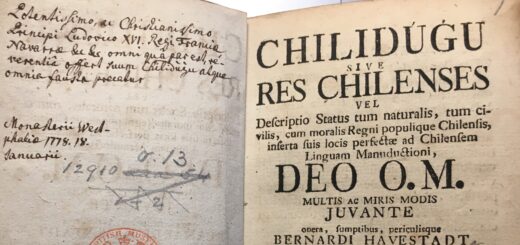 Potentissimo, ac Christianissimo
Principi Ludovico XVI. Regi Franciæ
Navarræ &c &c omni qua par est, re-
verentia offert suum Chilidugu atque
omnia fausta precatur
Monasterii West-
phaliæ 1778. 18.
Januarii.
12910
σ. 13
2
CHILIDÚǴU
SIVE
RES CHILENSES
VEL
Descriptio Status tum naturalis, tum ci-
vilis, cum moralis Regni populique Chilensis,
inserta suis locis perfectæ ad Chilensem
Linguam Manuductioni,
DEO O.M.
MULTIS AC MIRIS MODIS
JUVANTE
opera, sumptibus, periculisque
BERNARDI HAVESTADT